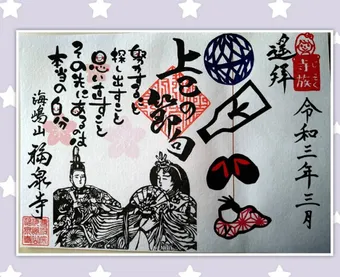 遙拝
令和三年三月
上巳の節句
すること
探し出すこと
思い出すこと
その先にあるのは
本当の自分
海嶋山
福泉寺